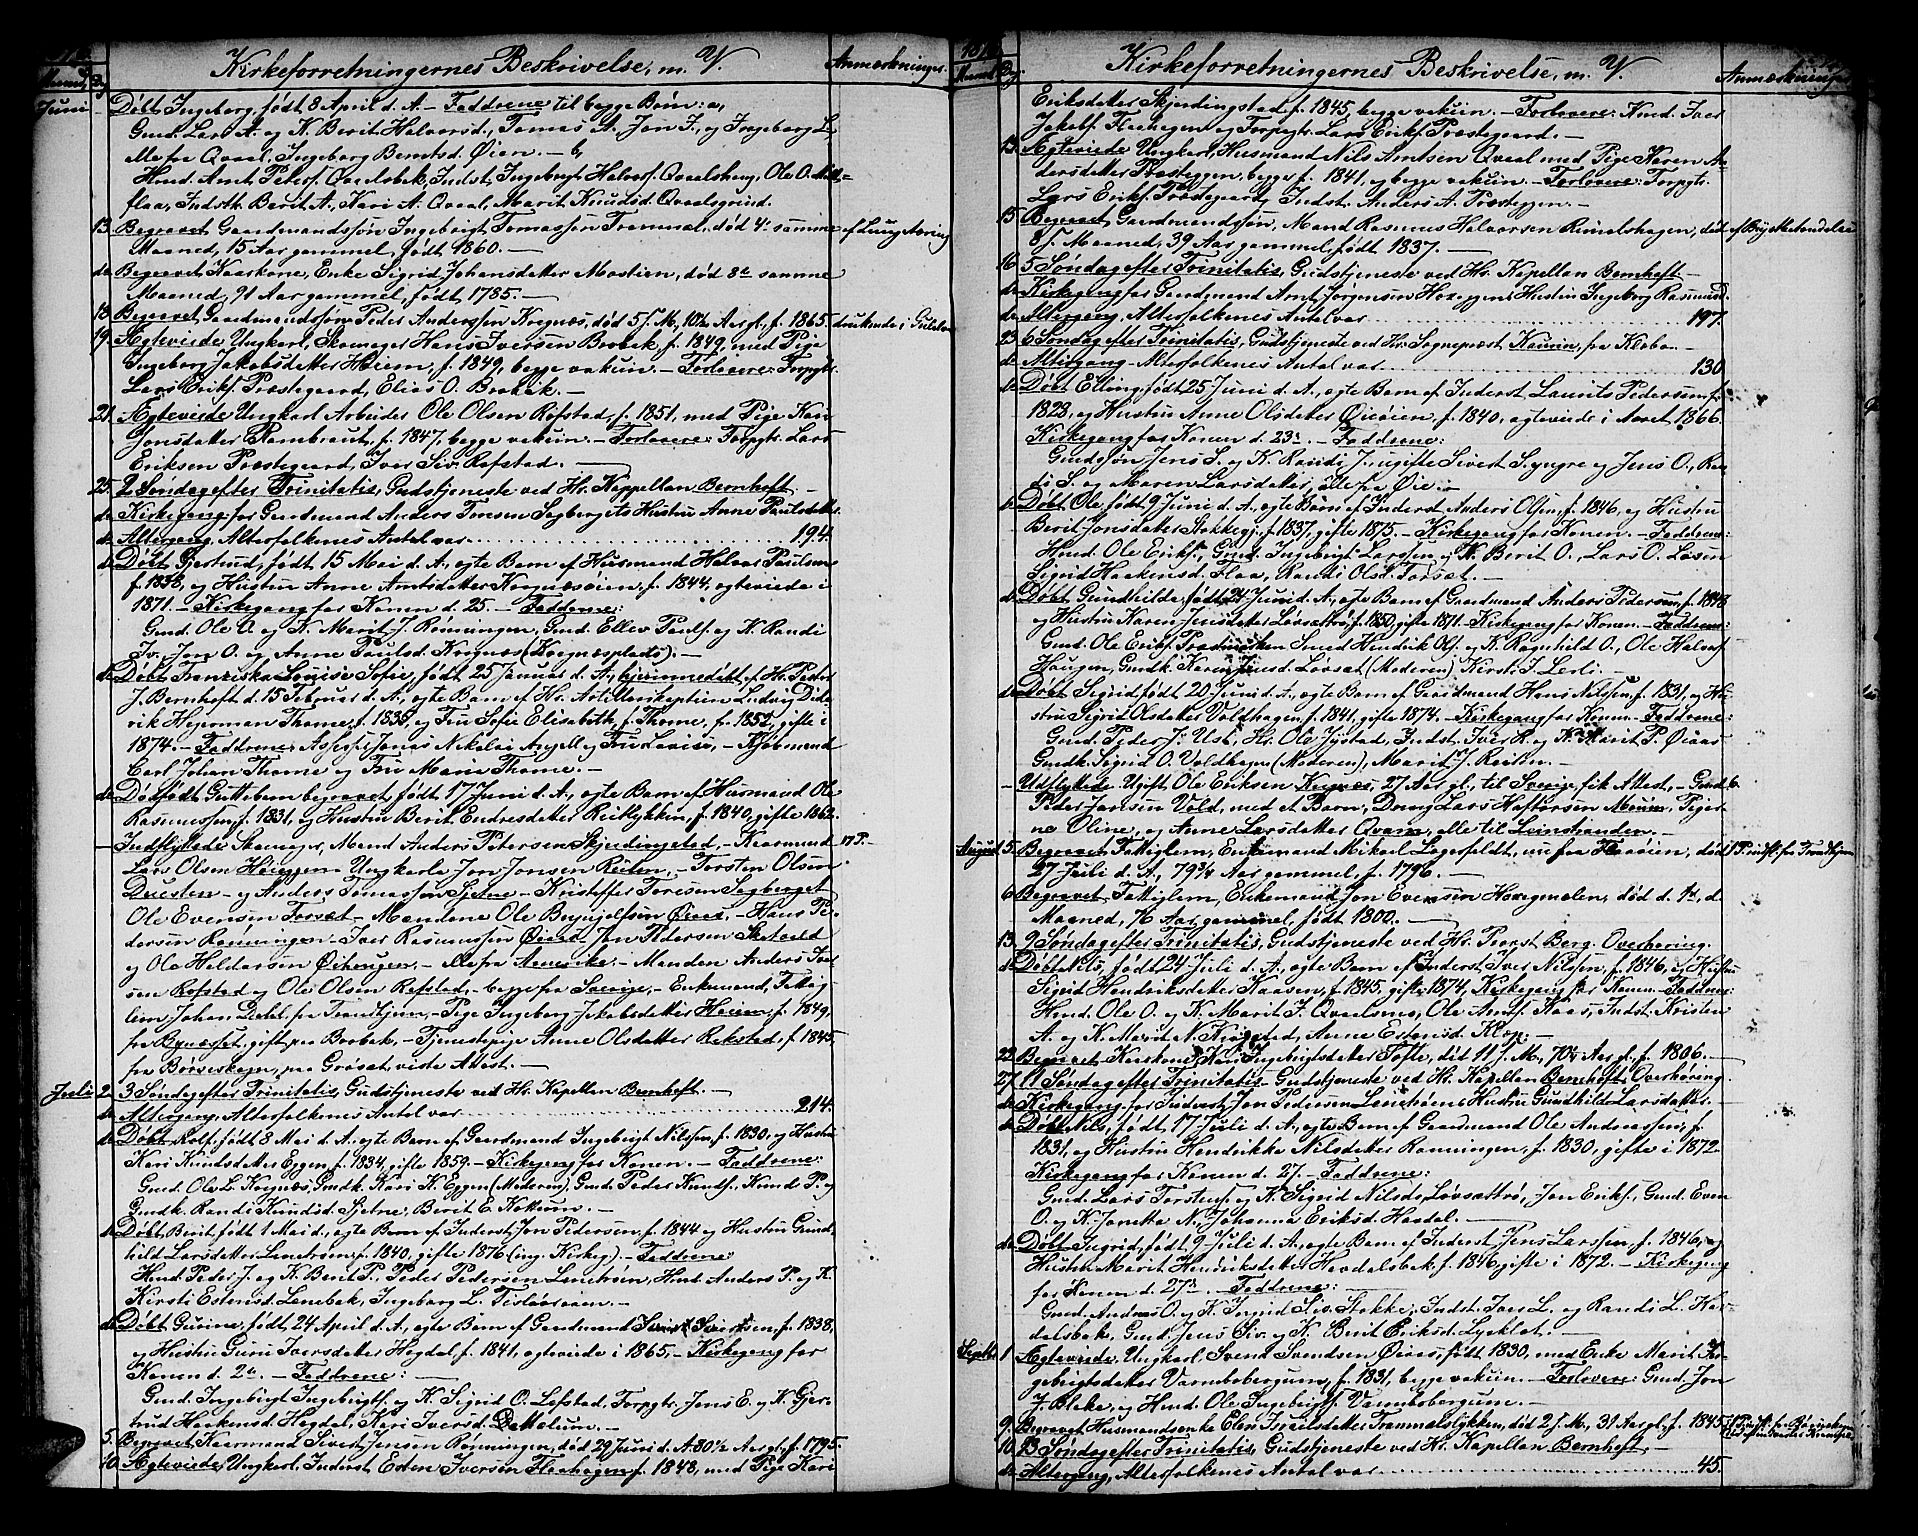 Kirkeforretningernes Beskrivelse, m. V. Anmærkninger.
Juni Døbt Ingeborg, født 8 April d. A. – Fadderne til begge Børn: a,
Gmd. Lars A. og K. Berit Halvorsd., Tomas A. Jon J., og Ingeborg L.
Alle fra Qvaal, Ingeborg Berntsd. Øien. – b,
Hmd. Arnt Peters. Qvaalsbek, Indst. Ingebrigt Halvors. Qvaalsheng, Ole O.
flaa, Indstk. Berit A., Kari A. Qvaal, Marit Knudsd. Qvaalsgrind.
13. Begravet Gaardmandssøn Ingebrigt Tomassøn Trammel, død 4de samme af Lung
Maaned, 15 Aar gammel, født 1860. –
do Begravet Kaarkone, Enke Sigrid Johansdatter Mostien, død 8de samme
Maaned, 91 Aar gammel, født 1785. –
18. Begravet Gaardmandssøn Peder Anderssen Krognæs, død 5/ d. M., 10½ Aar gl., f. 1865. druknede i Gulelven
19. Ægteviede Ungkarl, Skomager Hans Iversen Brobak, f. 1849, med Pige
Ingeborg Jakobsdatter Heiem, f. 1849, begge vakcin. – Forlovere: Forpgtr.
Lars Eriks. Præstegaard, Elias O. Brobak. –
21. Ægteviede Ungkarl Arbeider Ole Olsen Rofstad, f. 1851, med Pige Kari
Jonsdatter Rambraut, f. 1847, begge vakcin. – Forlovere: Forpgtr. Lars
Eriksen Præstegaard, Iver Siv. Rofstad. –
25. 2 Søndag efter Trinitatis, Gudstjeneste ved Hr. Kappellan Bernhoft –
do Kirkegang for Gaardmand Anders Tomsen Sagbergets Hustru Anne Paulsdatter
do Altergang, Alterfolkenes Antal var 194.
do Døbt Gjertrud, født 15 Mai d. A., ægte Barn af Husmand Halvor Paulsen
f. 1838, og Hustru Anne Arntsdatter Krognæsøien, f. 1844, ægteviede i
1871. – Kirkegang for Konen d. 25. – Fadderne:
Gmd. Ole O. og K. Marit J. Rønningen, Gmd. Ellev Pauls. og K. Randi
Iv., Jon O. og Anne Paulsd. Krognæs (Krognæsplads). –
do Døbt Franziska Louise Sofie, født 25 Januar d. A., hjemmedøbt af Hr. Pastor
J. Bernhoft d. 15 Februar d. A., ægte Barn af Hr. Artillerikaptein Ludvig Did-
rik Hejerman Thome, f. 1838 og Fru Sofie Elisabeth, f. Thome, f. 1852, gifte i
1874. – Fadderne: Jonas Nikolai Angell og Fru Lovise, – Kjøbmand
Carl Johan Thome og Fru Marie Thome. –
do Dødfødt Guttebarn begravet, født 17 Juni d. A., ægte Barn af Husmand Ole
Rasmussen, f. 1831, og Hustru Berit Endresdatter Reitlykken, f. 1840, gifte 1862.
Indflyttede Skomager, Mand Anders Petersen Skjerdingstad, – Kaarmand 17 P. –
Lars Olsen Høiggen – Ungkarle Jon Jonsen Reiten, – Torsten Olsen
Duesten – og Anders Tomassen Sjetne – Kristoffer Toresen Sagberget
Ole Evensen Forsæt – Mandene Ole Brynjelfsen Øiaas, – Hans Pe-
dersen Rønningen – Iver Rasmussen Øiaas, Jon Pedersen Skatvold
og Ole Haldorsen Øihaugen, – Alle fra Amerika – Manden Anders Iver
sen Rofstad og Ole Olsen Rofstad, – begge fra Sverige, – Enkemand, Fattig-
lem, Johan Dahl fra Trondhjem, – Pige Ingeborg Jakobsdatter Heiem, f. 1849,
fra Bynæsset, gift paa Borbak, – Tjenestepige Anne Olsdatter Rekstad, f. 1845,
fra Børseskogn, paa Grøsæt, viste Attest. –
Juli 2. 3 Søndag efter Trinitatis, Gudstjeneste ved Hr. Kapellan Bernhoft. –
do Altergang, Alterfolkenes Antal var 214.
do Døbt Rolf, født 8 Mai d. A., ægte Barn af Gaardmand Ingebrigt Nilssen, f. 1830, og Hustru
Kari Knudsdatter Eggen, f. 1834, gifte 1859. – Kirkegang for Konen. – Fadderne:
Gmd. Ole L. Krognæs, Gmdk. Kari K. Eggen (Moderen), Gmd. Peder Knuds., Knud P. og
Gmdk. Randi Knudsd. Sjetne, Berit E. Kokum. –
do Døbt Berit, født 1 Mai d. A., ægte Barn af Inderst Jon Pedersen, f. 1844 og Hustru Gund-
hild Larsdatter Lenebroen, f. 1840, gifte 1876 (ing. Kirkeg.) – Fadderne:
Hmd. Peder J. og K. Berit P., Peder Pedersen Lenebroen, Hmd. Anders P. og K.
Kirsti Estensd. Lenebak, Ingeborg L. –
do Døbt Guruine, født 24 April d. A., ægte Barn af Gaardmand Sivert Sivertsen, f. 1838,
og Hustru Guru Iversdatter Hegdal, f. 1841, ægteviede i 1865, – Kirkegang for
Konen d. 2de. – Fadderne: –
Gmd. Ingebrigt Ingebrigts. og K. Sigrid O. Lefstad, Forpgtr. Jens E. og K. Gjer-
trud Haakensd. Hegdal, Kari Iversd. Dahlmelum. –
5. Begravet Kaarmand Sivert Jensen Rønningen, død 29 Juni d. A. 80½ Aar gl., f. 1795.
10. Ægteviede Ungkarl, Inderst Esten Iversen Flaahagen f. 1848, med Pige Kari
Kirkeforretningernes Beskrivelse, m. V. Anmærkninger.
Eriksdatter Skjerdingstad, f. 1845, begge vakcin. – Forlovere: Kmd. Iver
Jakobs. Flaahagen og Forpgtr. Lars Eriks. Præstegaard. –
13. Ægteviede Ungkarl, Husmand Nils Arntsen Qvaal med Pige Karen An-
dersdatter Præsteggen, begge f. 1841, og begge vakcin. – Forlovere: Forpgtr.
Lars Eriks. Præstegaard, Indst. Anders A. Præsteggen. –
15. Begravet Gaardmandssøn, Mand Rasmus Halvorsen Rimolshagen, død af Brystbetændelse
8 d. Maaned, 39 Aar gammel, født 1837. –
16. 5 Søndag efter Trinitatis, Gudstjeneste ved Hr. Kapellan Bernhoft –
do Kirkegang for Gaardmand Arnt Jørgensen Hoxeggens Hustru Ingeborg Rasmusd.
do Altergang, Alterfolkenes Antal var 197.
23. 6 Søndag efter Trinitatis, Gudstjeneste ved Hr. Sogneprest Kaurin, fra Klæbu. –
do Altergang – Alterfolkenes Antal var 130
do Døbt Elling, født 25 Juni d. A., ægte Barn af Inderst Laurits Pedersen f.
1823, og Hustru Anne Olsdatter Øieøien, f. 1840, ægteviede i Aaret 1866.
Kirkegang for Konen d. 23de. – Fadderne:
Gmdssøn Jens S. og K. Randi J., ugifte Sivert S. yngre og Jens O., Ran-
di S. og Maren Larsdatter, alle fra Øie. –
do Døbt Ole, født 9 Juni d. A., ægte Barn af Inderst Anders Olsen, f. 1846, og Hustru
Berit Jonsdatter Stokkeg., f. 1837, gifte 1875. – Kirkegang for Konen. – Fadderne:
Hmd. Ole Eriks., Gmd. Ingebrigt Larssen og K. Berit O., Lars O. Losen
Sigrid Haakensd. Flaa, Randi Olsd. Forsæt. –
do Døbt Gundhilde, født 24 Juni d. A., ægte Barn af Gaardmand Anders Pedersen, f. 1848
og Hustru Karen Jensdatter Løvsættrø, f. 1850, gifte 1871. – Kirkegang for Konen. – Fadderne:
Gmd. Ole Eriks. Smed Hendrik Ols. og K. Ragnhild O., Ole Halvors.
Haugen, Gmdk. Karen Jensd. Løvsæt (Moderen), Kirst. J. Lerli. –
do Døbt Sigrid, født 20 Juni d. A., ægte Barn af Gaardmand Hans Nilssen, f. 1831, og Hu-
stru Sigrid Olsdatter Voldhagen, f. 1841, gifte 1874. – Kirkegang for Konen. – Fadderne:
Gmd. Peder J. Ust, Hr. Ole Jystad, Indst. Iver R. og K. Marit P. Øiaas
Gmdk. Sigrid O. Voldhagen (Moderen), Marit J. Reiten. –
– Udflyttede Ugift Ole Eriksen Krognæs, 27 Aar gl., til Sverige, fik Attest, – Gmd. 6.
Peder Jansen Vold, med et Barn, Dreng Lars Haftorsen Moum, Piger-
ne Oline, og Anne Larsdatter Qvam, alle til Leinstranden. –
August 5. Begravet Fattiglem, Enkemand Mikael Lagerfeldt, nu fra Flaaøien, død Trondhjem
27 Juli d. A., 79¾ Aar gammel, f. 1796. –
6. Begravet Fattiglem, Enkemand Jon Evensen Hoxegmelen, død d. 1ste, d.
Maaned, 76 Aar gammel, født 1800. –
13. 9 Søndag efter Trinitatis, Gudstjeneste ved Hr. Provst Berg. Overhøring.
do Døbt Nils, født 24 Juli d. A., ægte Barn af Inderst Iver Nilssen, f. 1846, og Hustru
Sigrid Hendriksdatter Kaasen, f. 1845, gifte 1874, Kirkegang for Konen – Fadderne:
Hmd. Ole O. og K. Marit J. Qvaalsmo, Ole Arnts. Kaas, Indst. Kristen
A. og K. Marit N. Anne Estensd. Klop. –
22. Begravet Kaarkone Kari Ingebrigtsdatter Tofte, død 11 d. M., 70¼ Aar gl., f. 1806. –
27. 11 Søndag efter Trinitatis – Gudstjeneste ved Hr. Kapellan Bernhoft, Overhøring.
do Kirkegang for Inderst Jon Pedersen Lenebroens Hustru Gundhild Larsdatter. –
do Døbt Nils, født 17 Juli d. A., ægte Barn af Gaardmand Ole Andreassen, f.
1831, og Hustru Hendrikke Nilsdatter Rønningen, f. 1830, gifte i 1872.
Kirkegang for Konen d. 27. – Fadderne:
Gmd. Lars Torstens. og K. Sigrid Nilsd. Løvsættrø, Jon Eriks., Gmd. Even
O. og K. Janetta N., Johanna Eriksd. Havdal. –
do Døbt Ingrid, født 9 Juli d. A., ægte Barn af Inderst Jens Larssen, f. 1846, og
Hustru Marit Hendriksdatter Havdalsbak, f. 1846, gifte i 1872. – Kirkegang
for Konen d. 27de. – Fadderne:
Gmd. Andreas O. og K. Ingrid Siv. Stokke, Indst. Iver L. og Randi L. Hav-
dalsbak, Gmd. Jens Siv. og K. Berit Eriksd. Lyeklæt. –
Septbr. 1. Ægteviede, Ungkarl, Svend Svendsen Øiaas, født 1830, med Enke Marit In-
gebrigtsdatter Varmbobergum, f. 1831, begge vakcin. – Forlovere: Gmd. Jon
J. Bleke, og Hmd. Ole Ingebrigts. Vambobergum. –
9. Begravet Husmandsenke Elen Israelsdatter Trammelslykken, død 2 d. M., 31 Aar gl., f. 1845
10. 13 Søndag efter Trinitatis, Gudstjeneste ved Hr. Kapellan Bernhoft –
do Altergang, Alterfolkenes Antal var 45.